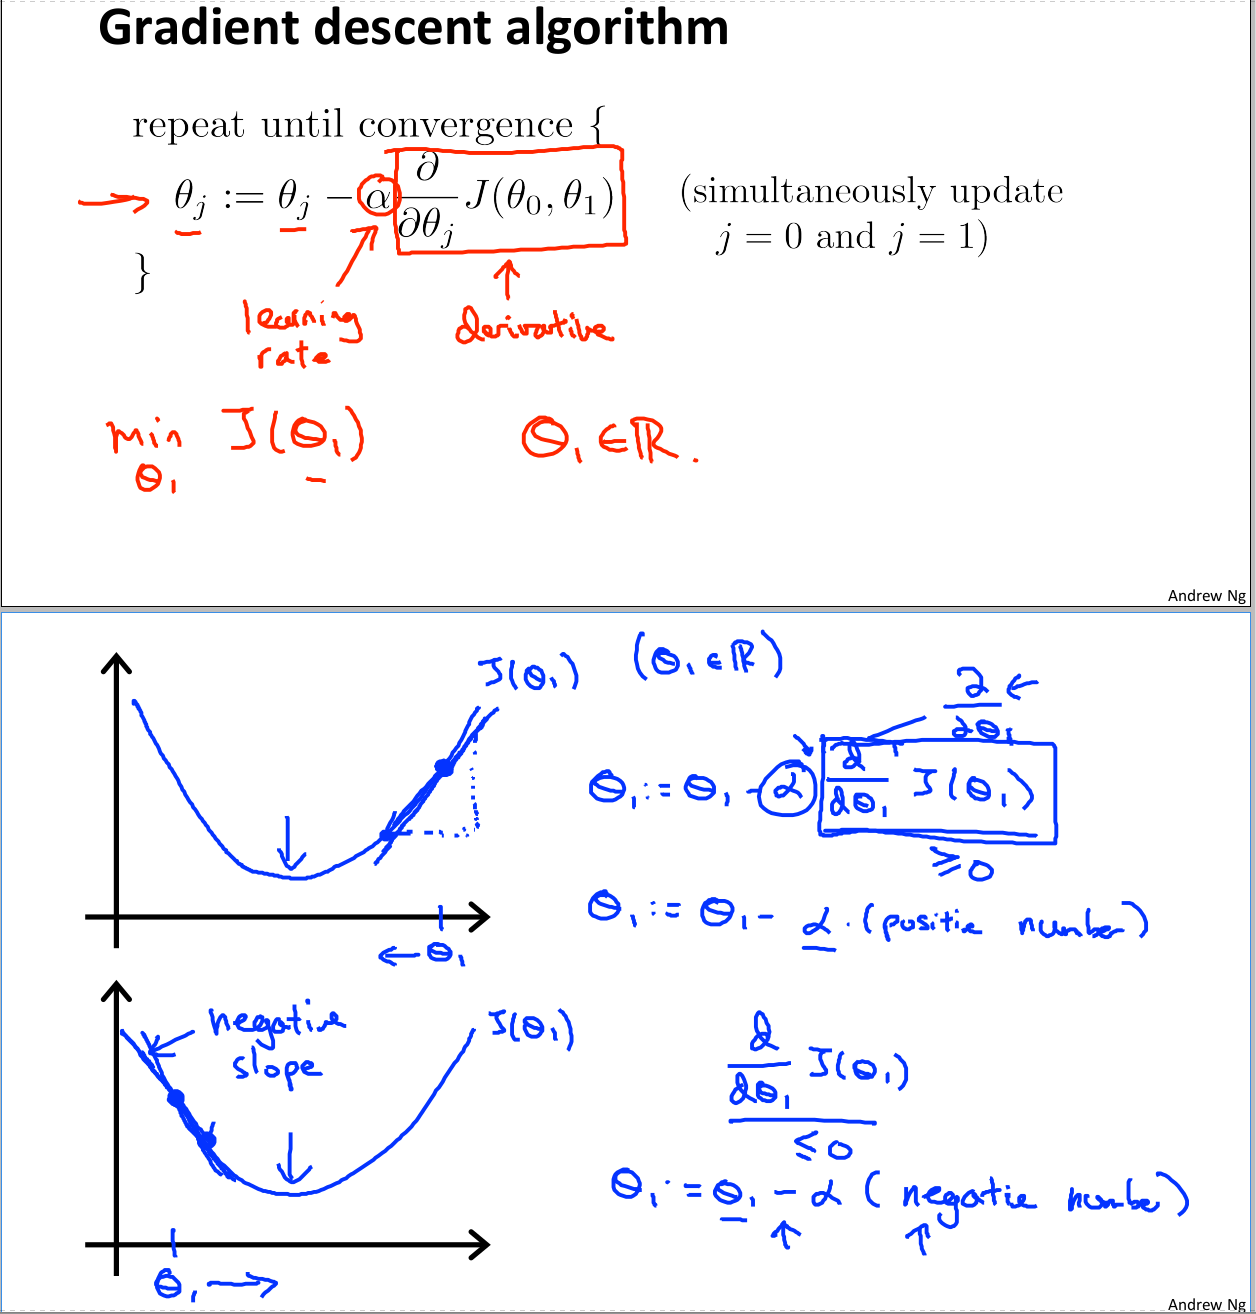 Gradient descent algorithm
repeat until convergence {
θj := θj − α ∂/∂θj J(θ0, θ1)
(simultaneously update
j = 0 and j = 1)
}
learning
rate
derivative
min J(θ1)
θ1
θ1 ∈ ℝ.
Andrew Ng
J(θ1) (θ1 ∈ ℝ)
∂/∂θ1
θ1 := θ1 - α d/dθ1 J(θ1)
≥ 0
θ1 := θ1 - α · (positie number)
θ1
negative
slope
J(θ1)
d/dθ1 J(θ1)
≤ 0
θ1 := θ1 - α (negatie number)
θ1
Andrew Ng